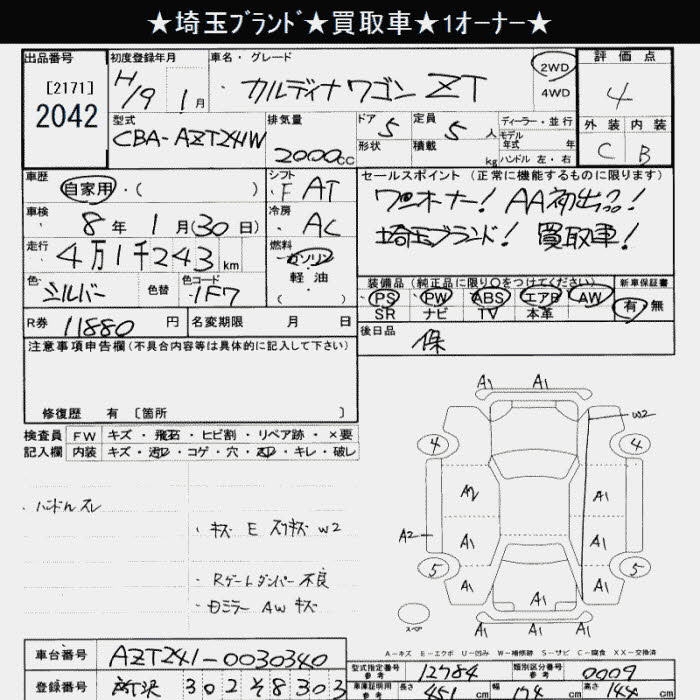 ★埼玉ﾌﾞﾗﾝﾄﾞ★買取車★1オーナー★
出品番号
[2171]
2042
初度登録年月
H19 1月
車名・グレード
カルディナワゴン ZT
2WD
4WD
評価点
4
外装 内装
C B
型式
CBA-AZT241W
排気量
2000cc
ドア 5
定員 5人
形状
積載 kg
ディーラー・並行
モデル年式 年式
ハンドル 左・右
車歴
自家用・( )
シフト
F AT
セールスポイント (正常に機能するものに限ります)
ワンオーナー! AA初出品!
埼玉ブランド! 買取車!
車検
8年 1月(30日)
冷房
AC
走行
4万1千243km
燃料
ガソリン
軽・油
( )
色
シルバー
色替
色コード
1F7
装備品 (純正品に限り○をつけてください)
PS PW ABS エアB AW
SR ナビ TV 本革
新車保証書
有 無
R券 11880円
名変期限 月 日
後日品
保
注意事項申告欄(不具合内容等は具体的に記入して下さい)
修復歴 有 〔箇所 〕
検査員 FW キズ・飛石・ヒビ割・リペア跡・×要
記入欄 内装 キズ・汚レ・コゲ・穴・スレ・キレ・破レ
・ハンドルスレ
・キズ E スリキズ W2
・Rゲートダンパー不良
・Dミラー AW キズ
A1 A1
W2
4 4
A2 A1
A2 A1 A1
A1 A1
5 5
A1
A1 A1
スペア
A-キズ E-エクボ U-凹み W-補修跡 S-サビ C-腐食 XX-交換済
車台番号 AZT241-0030340
型式指定番号 参考 12784
類別区分番号 参考 0009
登録番号 所沢 302 す 8303
車庫証明用 参考
長さ 451cm
幅 174cm
高さ 144cm